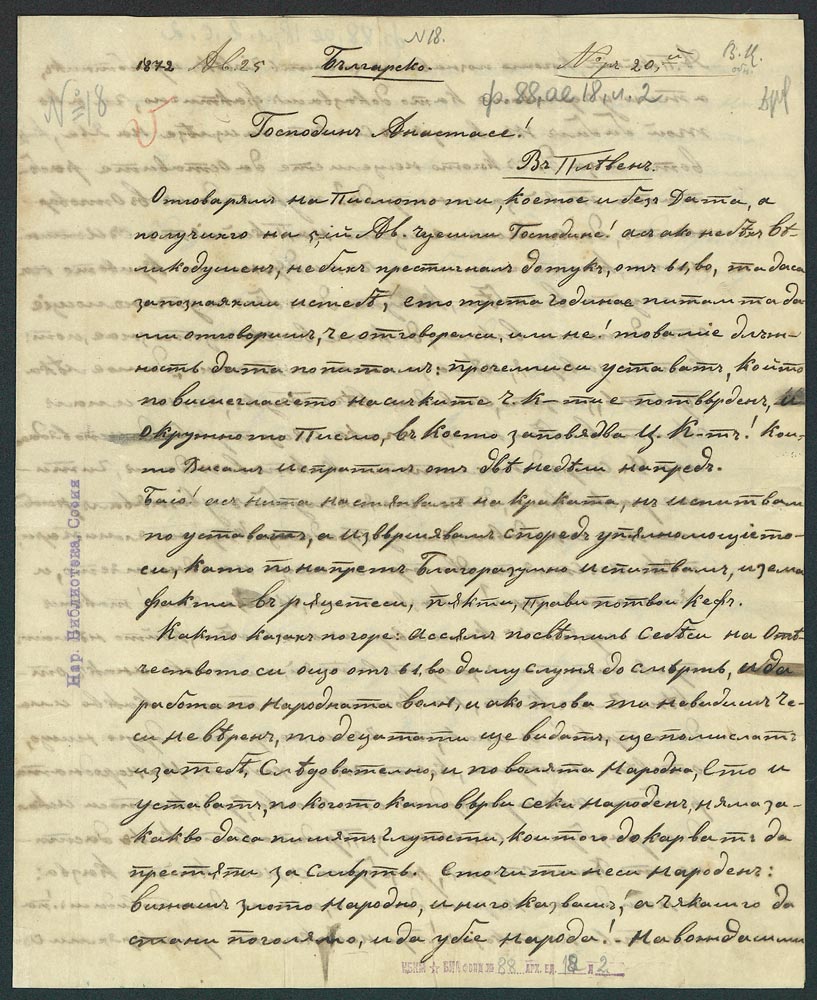 N 18.
1872 Ав. 25 Българско. № ръ 20,ый В. Ц.
обн.
№ 18 ф. 88, ае 18, л. 2
Господинъ Анастасе!
Въ Плѣвенъ.
Отговарямъ на Писмото ти, което и безъ Дата, а
получихго на 5,ій Ав. Чуешли Господине! азъ ако небѣхъ Вѣ-
ликодушенъ, небихъ престигналъ дотукъ, отъ 61,во, та даса
запознаяхми истебѣ, ето трета година е питам та да
ми отговоришъ, че отговорелси, или не! това міе длъж-
ность дата попитамъ: прочелмиси уставатъ, който
повишегласіето насичките Ч. К-тие потвърденъ, и
окружното Писмо, въ което заповядва Ц. К-тъ! кои-
то Висамъ испратилъ отъ двѣ недѣли напредъ.
Байо! азъ нита настявамъ на краката, нъ испитвам
по уставатъ, а извършявамъ споредъ упълномощіето-
си, като понапретъ Благоразумно испитвамъ, изема
факти въ ряцетеси, пякти, Прави потвои Кефъ.
Както казахъ погоре: Ассямъ посвѣтилъ Себѣси на Отѣ-
чествотоси ощо отъ 61,во дамуслужя до смърть, и да
работа по Народната воля, и ако това ти невидишъ че-
си невѣренъ, то децатати ще видатъ, ще помислатъ
изатебѣ, Слѣдователно, и поволята Народна, Ето и
уставатъ, по когото като върви секи народенъ, нямаза-
какво даса пишятъ глупости, които го докарват да
престяпи за Смърть. Еточитинеси Народенъ:
винаиш злото Народно, и никого казвашъ, а чякашго да
стани поголямо, и да убіе Народа! Навождашми
Нар. Библиотека, София
НБКМ ☆ БИА фонд № 88 арх. ед. 18 л 2